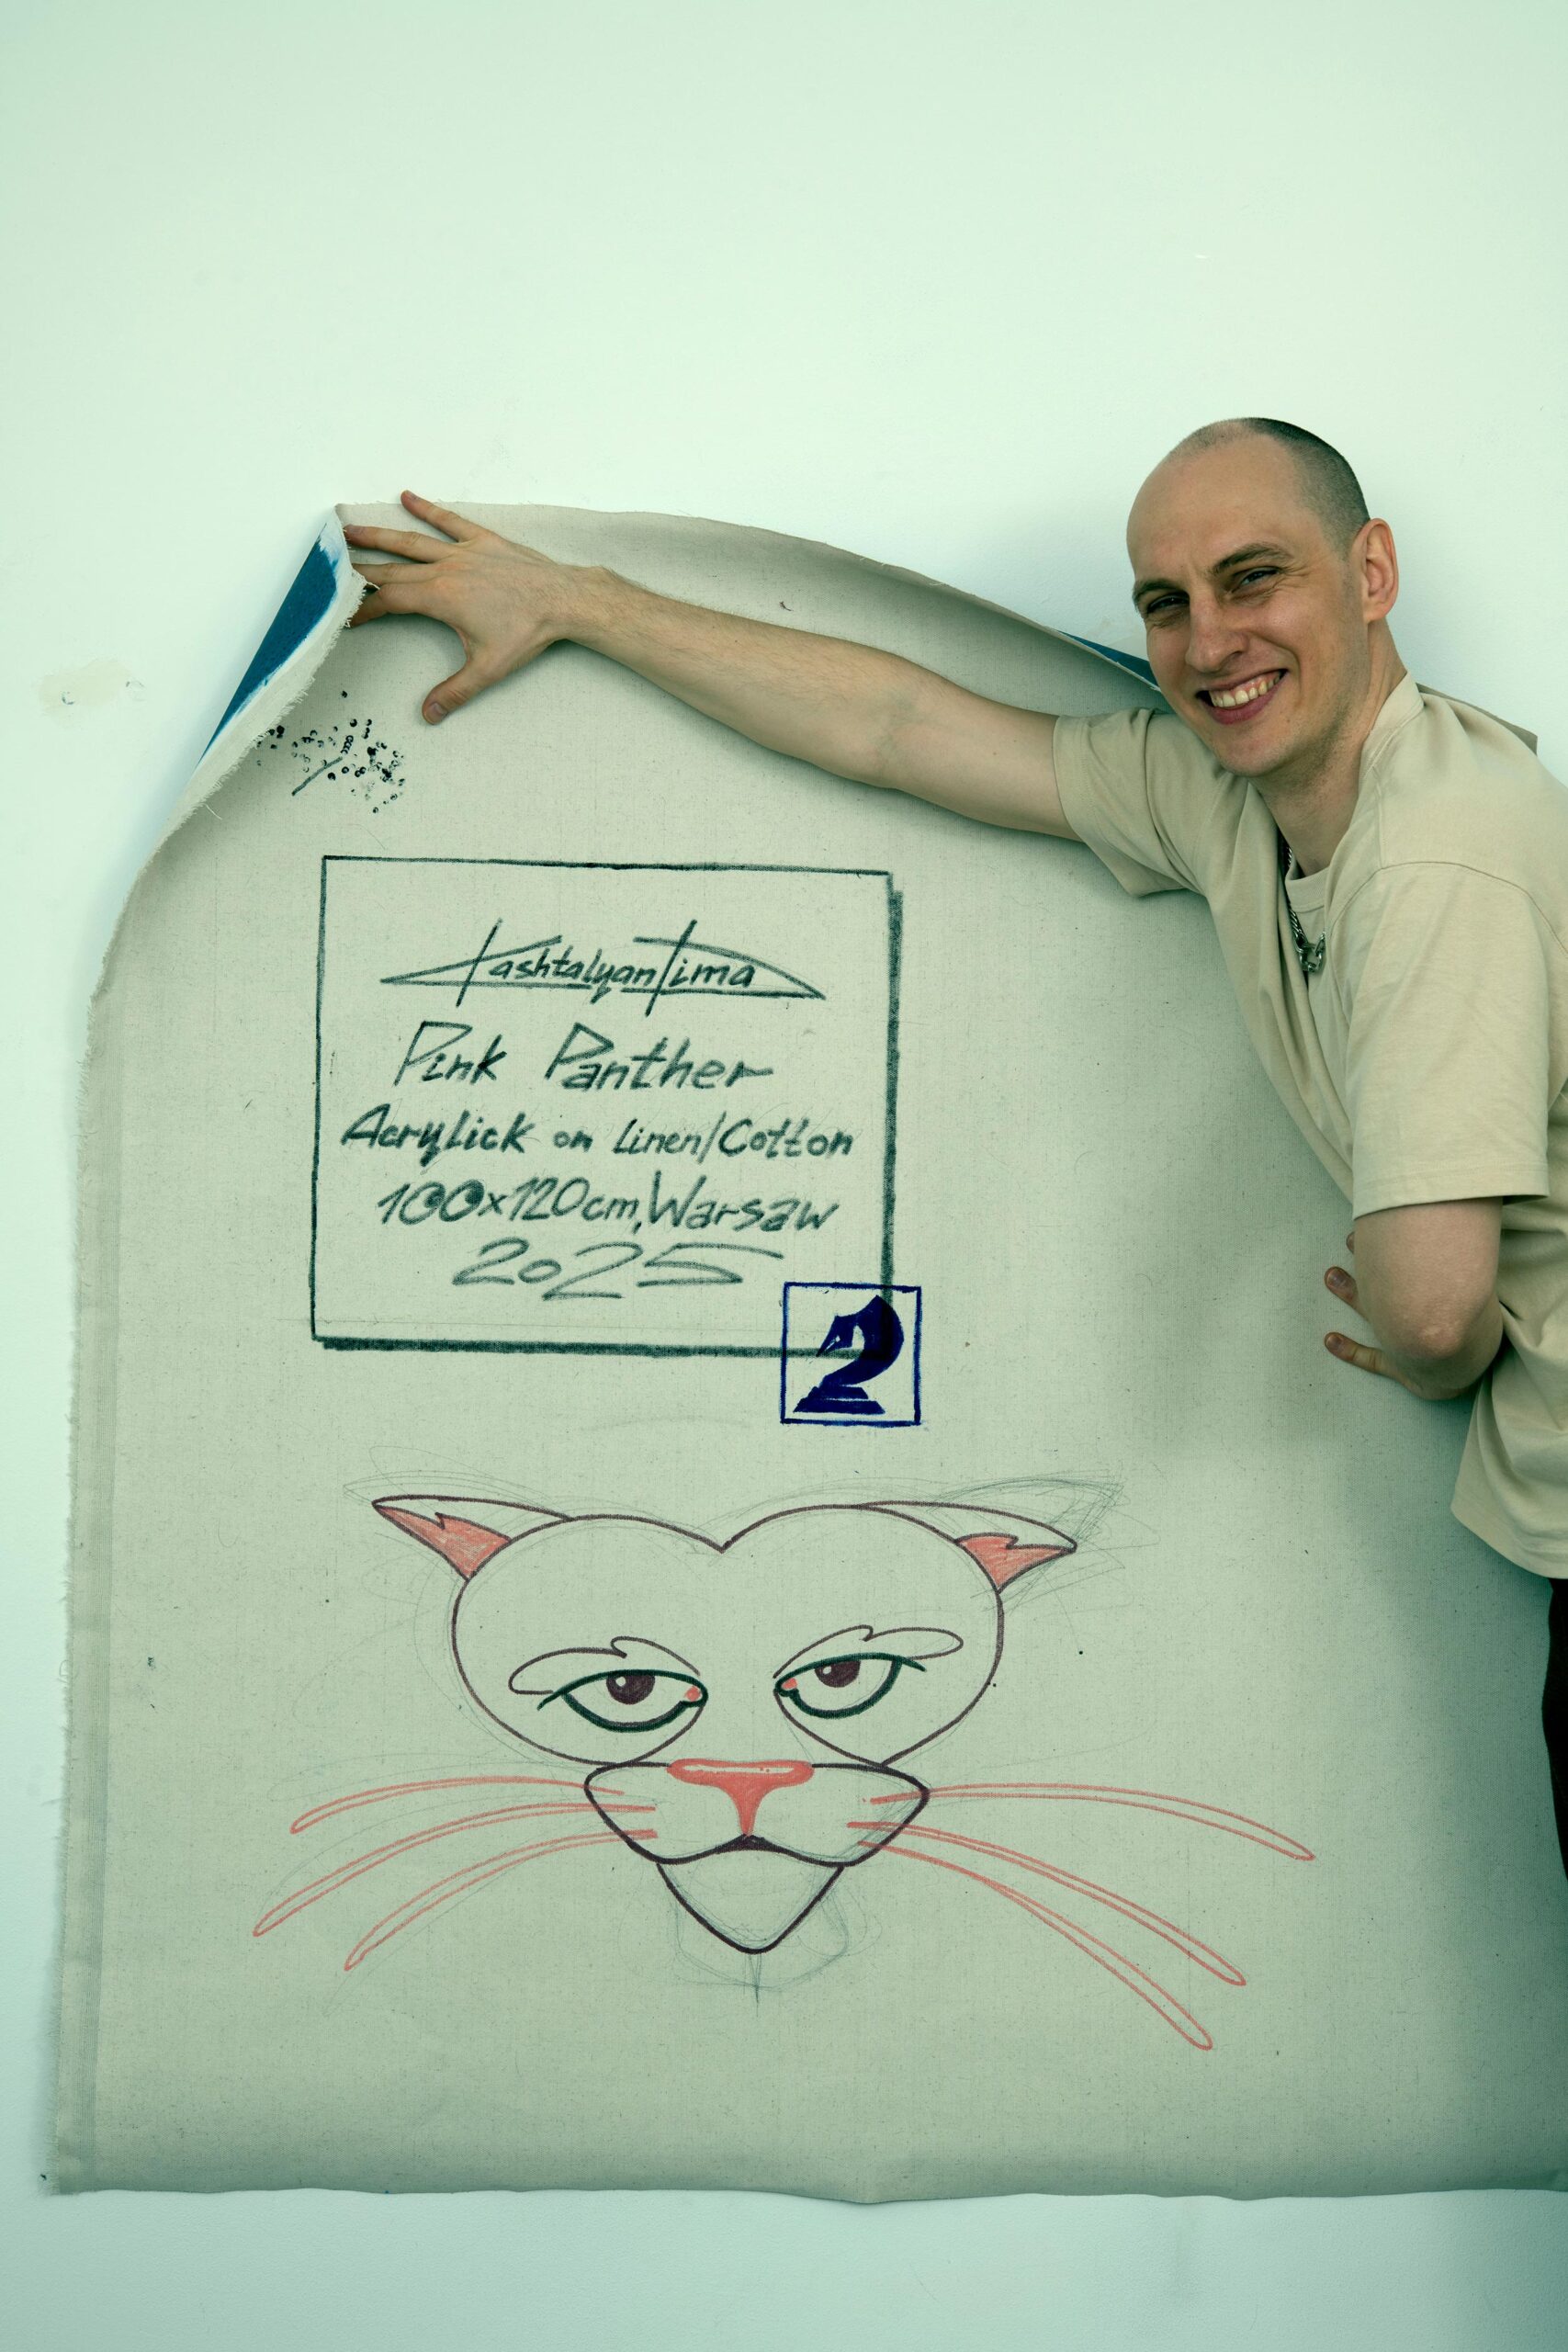 Kashtalyan Tima
Pink Panther
Acrylick on Linen/Cotton
100x120cm, Warsaw
2025